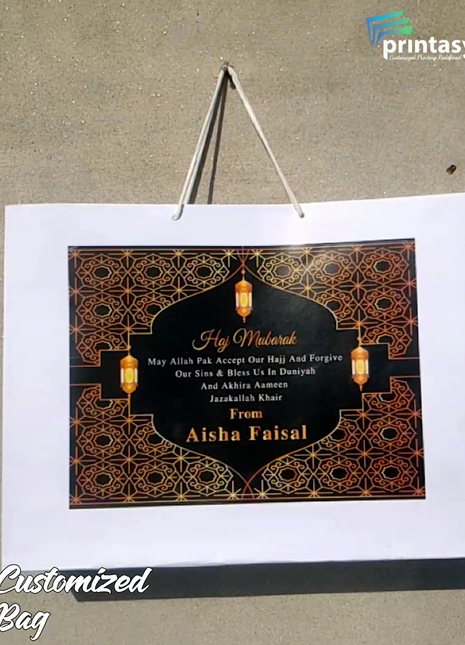 printasy
Customized Printing Redefined
Haj Mubarak
May Allah Pak Accept Our Hajj And Forgive
Our Sins & Bless Us In Duniyah
And Akhira Aameen
Jazakallah Khair
From
Aisha Faisal
Customized
Bag